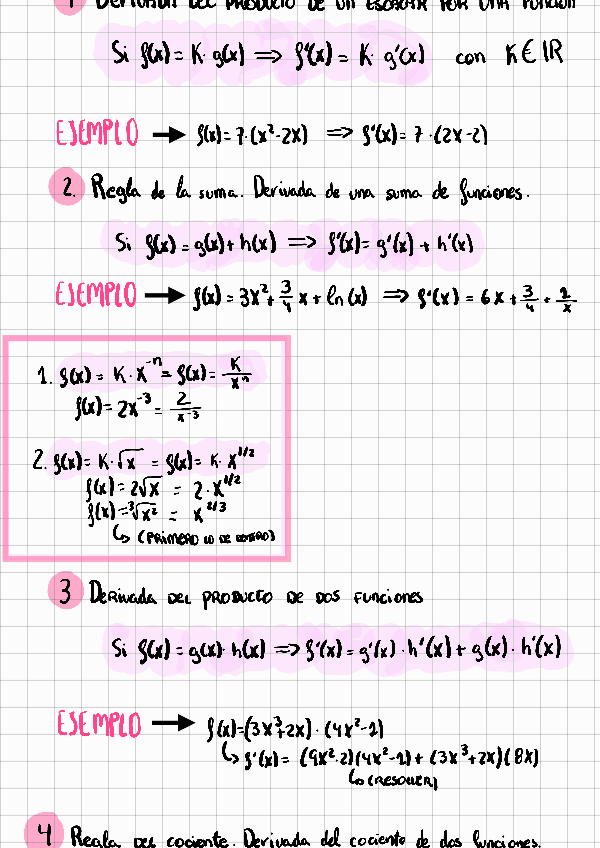 1 DERIVADA DEL PRODUCTO DE UN ESCALAR POR UNA FUNCIÓN
Si f(x) = K · g(x) ⟹ f'(x) = K · g'(x) con K ∈ ℝ
EJEMPLO → f(x) = 7 · (x² - 2x) ⟹ f'(x) = 7 · (2x - 2)
2. Regla de la suma. Derivada de una suma de funciones.
Si f(x) = g(x) + h(x) ⟹ f'(x) = g'(x) + h'(x)
EJEMPLO → f(x) = 3x² + 3/4 x + ln(x) ⟹ f'(x) = 6x + 3/4 + 1/x
1. f(x) = K · x⁻ⁿ = f(x) = K/xⁿ
f(x) = 2x⁻³ = 2/x⁻³
2. f(x) = K · √x = f(x) = K · x^1/2
f(x) = 2√x = 2 · x^1/2
f(x) = ³√x² = x^2/3
↳ (PRIMERO LO DE DENTRO)
3 DERIVADA DEL PRODUCTO DE DOS FUNCIONES
Si f(x) = g(x) · h(x) ⟹ f'(x) = g'(x) · h'(x) + g(x) · h'(x)
EJEMPLO → f(x) = (3x³ + 2x) · (4x² - 1)
↳ f'(x) = (9x² · 2)(4x² - 1) + (3x³ + 2x)(8x)
↳ (RESOLVER)
4 Regla DEL cociente. Derivada del cociente de dos funciones.